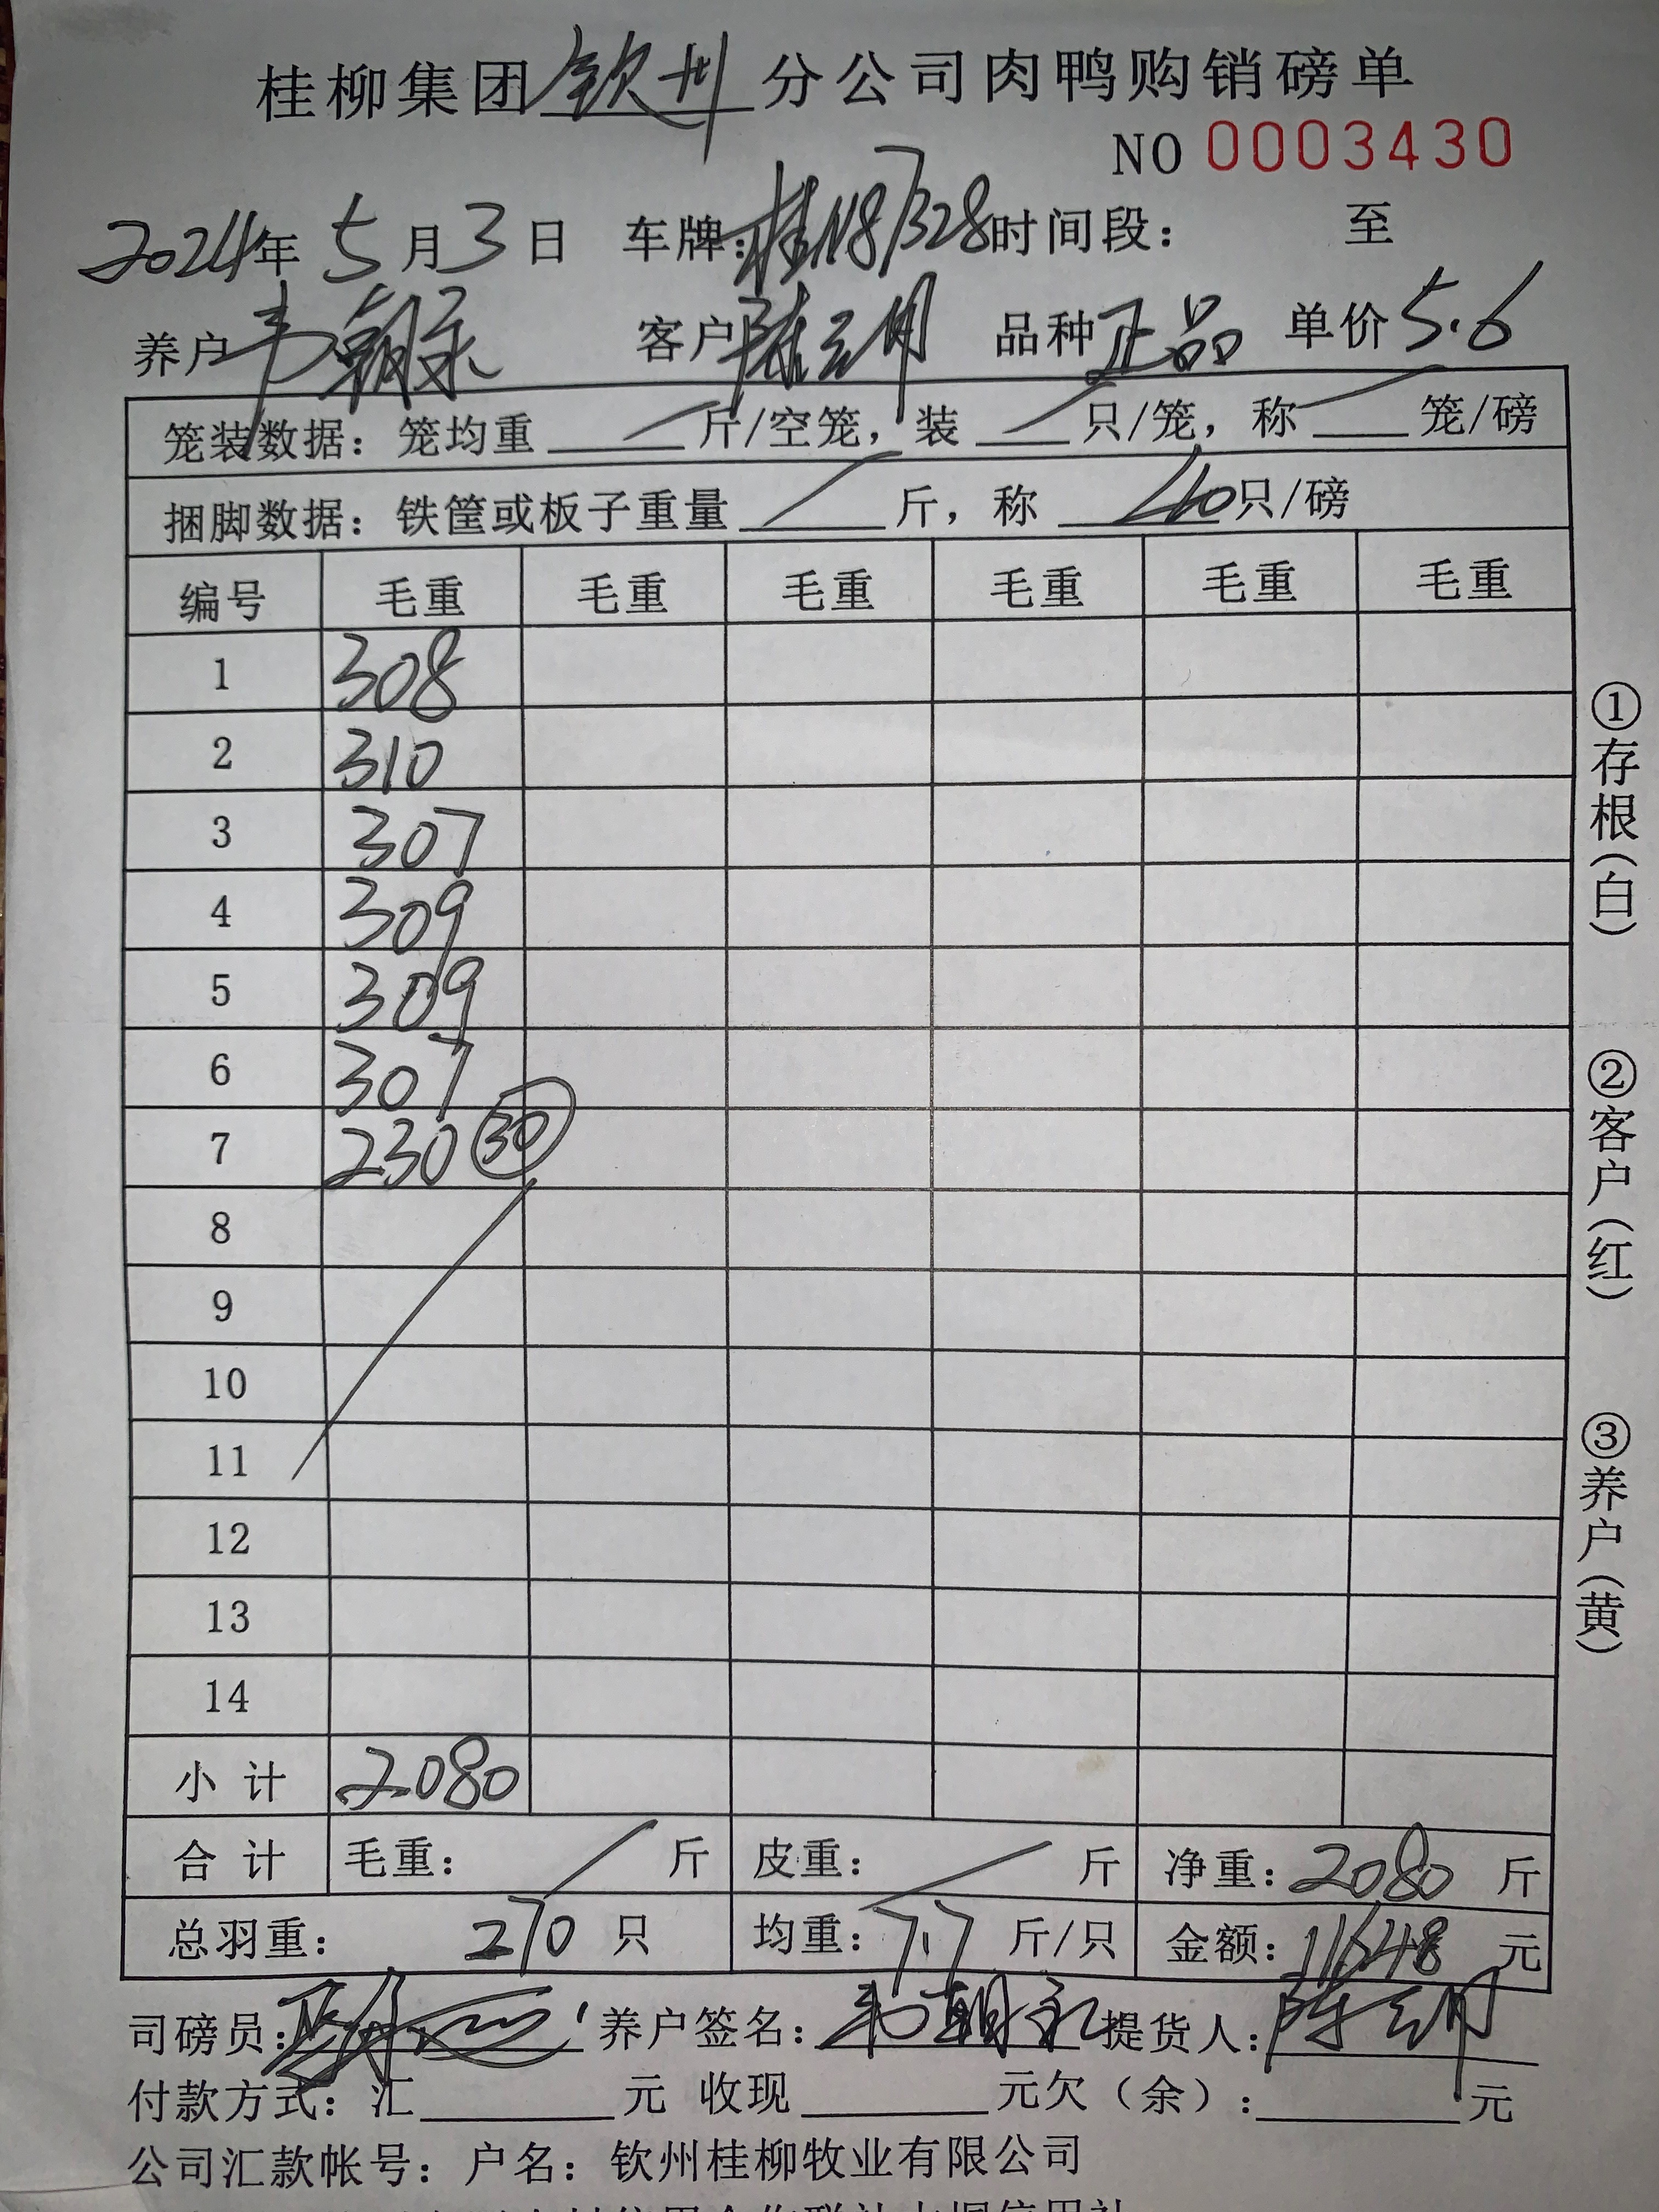 桂柳集团钦州分公司肉鸭购销磅单
NO 0003430
2024年5月3日 车牌:桂N87328时间段: 至
养户韦朝永 客户陈云朋 品种正品 单价5.6
笼装数据:笼均重 / 斤/空笼,装 / 只/笼,称 / 笼/磅
捆脚数据:铁筐或板子重量 / 斤,称 40只/磅
编号 毛重 毛重 毛重 毛重 毛重 毛重
1 308
2 310
3 307
4 309
5 309
6 307
7 230 30
8
9
10
11
12
13
14
小计 2080
合计 毛重: / 斤 皮重: / 斤 净重:2080斤
总羽重: 270只 均重:7.7斤/只 金额:11648元
司磅员: 养户签名:韦朝永 提货人:陈云朋
付款方式:汇 元 收现 元欠(余): 元
公司汇款帐号:户名:钦州桂柳牧业有限公司
①存根(白)
②客户(红)
③养户(黄)